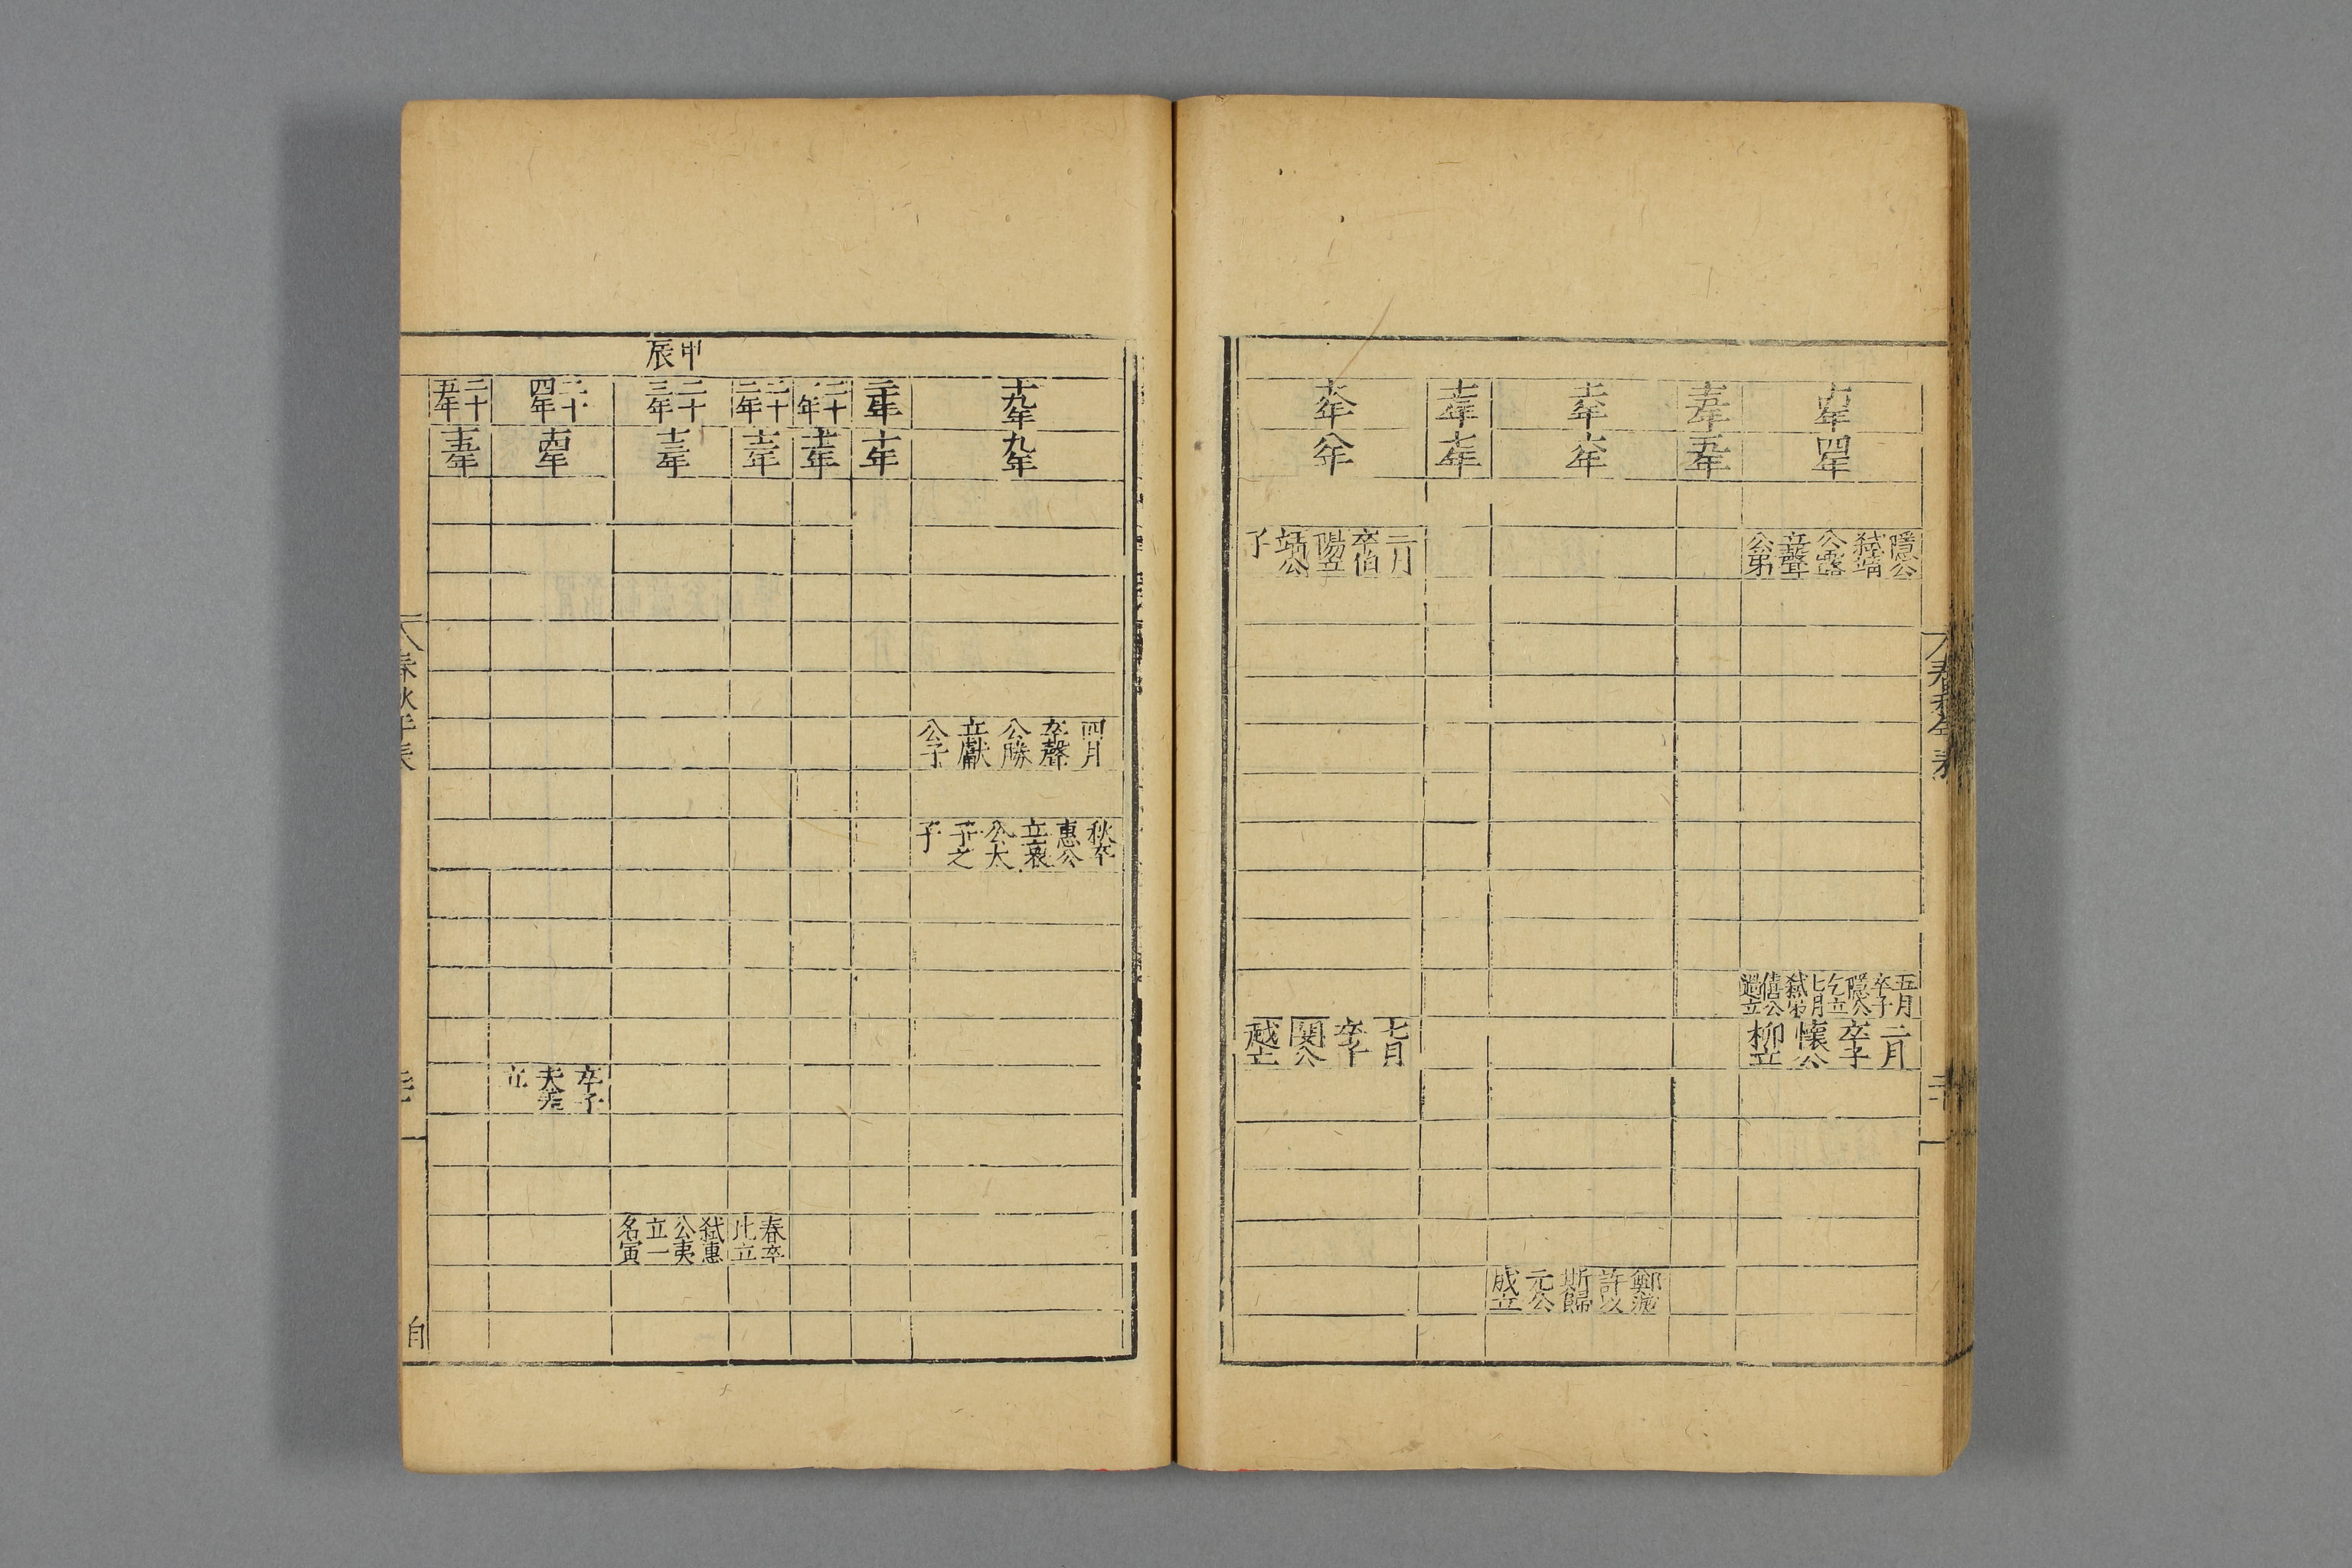 春秋年表
十四年
四年
隱公弑靖公露立聲公弟
五月卒子隱公乞立七月弑弟僖公過立
二月卒子懷公柳立
十五年
五年
十六年
六年
鄭滅許以斯歸元公成立
十七年
七年
十八年
八年
三月卒伯陽立靖公子
七月卒子閔公越立
十九年
九年
四月卒聲公勝立獻公子
秋卒惠公立哀公太子之子
二十年
十年
二十一年
十一年
二十二年
十二年
春卒比立
甲辰
二十三年
十三年
弑惠公夷立一名寅
二十四年
十四年
卒子夫差立
二十五年
十五年
春秋年表